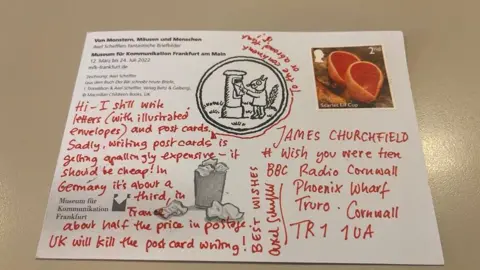 Von Monstern, Mäusen und Menschen
Axel Schefflers fantastische Briefbilder
Museum für Kommunikation Frankfurt am Main
12. März bis 24. Juli 2022
mfk-frankfurt.de
Zeichnung: Axel Scheffler
Hi - I still write
letters (with illustrated
envelopes) and post cards.
Sadly, writing post cards is
getting appallingly expensive - it
should be cheap! In
Germany it's about a
third, in
France
about half the price in postage.
UK will kill the post card writing!
Museum für
Kommunikation
Frankfurt
BEST WISHES
Axel Scheffler
2nd
Scarlet Elf Cup
JAMES CHURCHFIELD
# Wish you were here
BBC Radio Cornwall
Phoenix Wharf
Truro . Cornwall
TR1 1UA